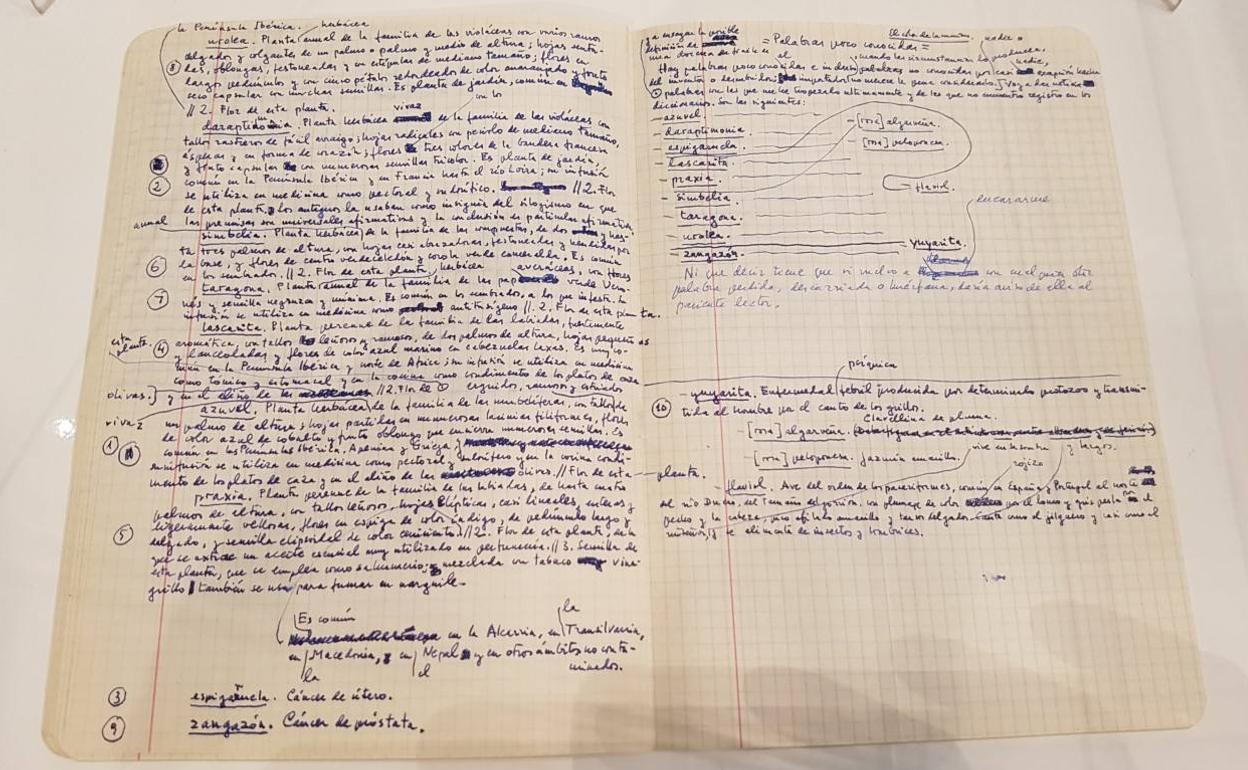 la Península Ibérica. herbácea
urolea. Planta anual de la familia de las violáceas con varios ramos
delgados y colgantes de un palmo o palmo y medio de altura; hojas senta-
das, oblongas, festoneadas y con estípulas de mediano tamaño; flores en
largo pedúnculo y con cinco pétalos redondeados de color anaranjado y fruto
seco capsular con muchas semillas. Es planta de jardín, común en
8
// 2. Flor de esta planta. vivaz con los
daraptimonia. Planta herbácea de la familia de las violáceas con
tallos rastreros de fácil arraigo; hojas radicales con peciolo de mediano tamaño,
ásperas y en forma de corazón; flores tres colores de la bandera francesa
y fruto capsular con numerosas semillas tricolor. Es planta de jardín,
2
común en la Península Ibérica y en Francia hasta el río Loira; su infusión
se utiliza en medicina como pectoral y sudorífico. // 2. Flor
de esta planta, los antiguos la usaban como insignia del silogismo en que
las premisas son universales afirmativas y la conclusión es particular afirmativa.
anual
simbelia. Planta herbácea de la familia de las compuestas, de dos has-
ta tres palmos de altura, con hojas casi abrazadoras, festoneadas y hendidas por
la base, y flores de centro y corola verde. Es común
6
en los sembrados. // 2. Flor de esta planta. herbácea
taragona. Planta anual de la familia de las con flores verde Vero-
7
nés y semilla negruzca y mínima. Es común en los sembrados, a los que infesta. Su
infusión se utiliza en medicina como // 2. Flor de esta planta.
lascarita. Planta perenne de la familia de las labiadas, fuertemente
esta planta.
4
aromática, con tallos leñosos y ramosos, de dos palmos de altura, hojas pequeñas
y lanceoladas y flores de color azul marino en cabezuelas laxas. Es muy co-
mún en la Península Ibérica y norte de África; su infusión se utiliza en medicina
como tónico y estomacal y en la cocina como condimento de los platos de caza
olivas.] y en el aliño de las // 2. Flor de erguidos, ramosos y estriados
azuvel. Planta herbácea de la familia de las umbelíferas, con tallos de
vivaz
un palmo de altura; hojas partidas en numerosas lacinias filiformes, flores
de color azul de cobalto y fruto oblongo que encierra numerosas semillas. Es
1
común en las Penínsulas Ibérica, Apenina y Griega y
su infusión se utiliza en medicina como pectoral y y en la cocina condi-
mento de los platos de caza y en el aliño de las olivas. // Flor de esta planta.
praxia. Planta perenne de la familia de las labiadas, de hasta cuatro
palmos de altura, con tallos leñosos, hojas elípticas, casi lineales, enteras y
ligeramente vellosas, flores en espiga de color índigo, de pedúnculo largo y
5
delgado, y semilla elipsoidal de color ceniciento. // 2. Flor de esta planta, de la
que se extrae un aceite esencial muy utilizado en perfumería. // 3. Semilla de
esta planta, que se emplea como sahumerio; mezclada con tabaco vina-
grillo también se usa para fumar en narguile.
Es común
en la Alcarria, en la Transilvania,
en la Macedonia, en el Nepal y en otros ámbitos no conta-
minados.
3
espigañuela. Cáncer de útero.
9
zangazón. Cáncer de próstata.
= Palabras poco conocidas =
Hay palabras poco conocidas e incluso palabras no conocidas por casi
palabras con las que me he tropezado últimamente y de las que no encuentro registro en los
diccionarios. Son las siguientes:
- azuvel.
- daraptimonia.
- [rosa] algarveña.
- espigañuela.
- [rosa] peloponesa.
- lascarita.
- praxia.
- flaviol.
- simbelia.
- taragona.
- urolea.
yuyarita.
- zangazón.
encararme
Ni que decir tiene que si vuelvo a con cualquier otra
palabra perdida, descarriada o huérfana, daría aviso de ella al
paciente lector.
psíquica
10
- yuyarita. Enfermedad febril producida por determinado protozoo y transmi-
tida al hombre por el canto de los grillos.
Clavellina de pluma.
- [rosa] algarveña.
- [rosa] peloponesa. Jazmín amarillo.
rojizo
y largos.
- flaviol. Ave del orden de los paseriformes, común en España y Portugal al norte
del río Duero, del tamaño del gorrión, con plumaje de color por el lomo y gris perla en el
pecho y la cabeza, pico afilado amarillo y tarsos delgados. Canta como el jilguero y casi como el
ruiseñor, y se alimenta de insectos y lombrices.